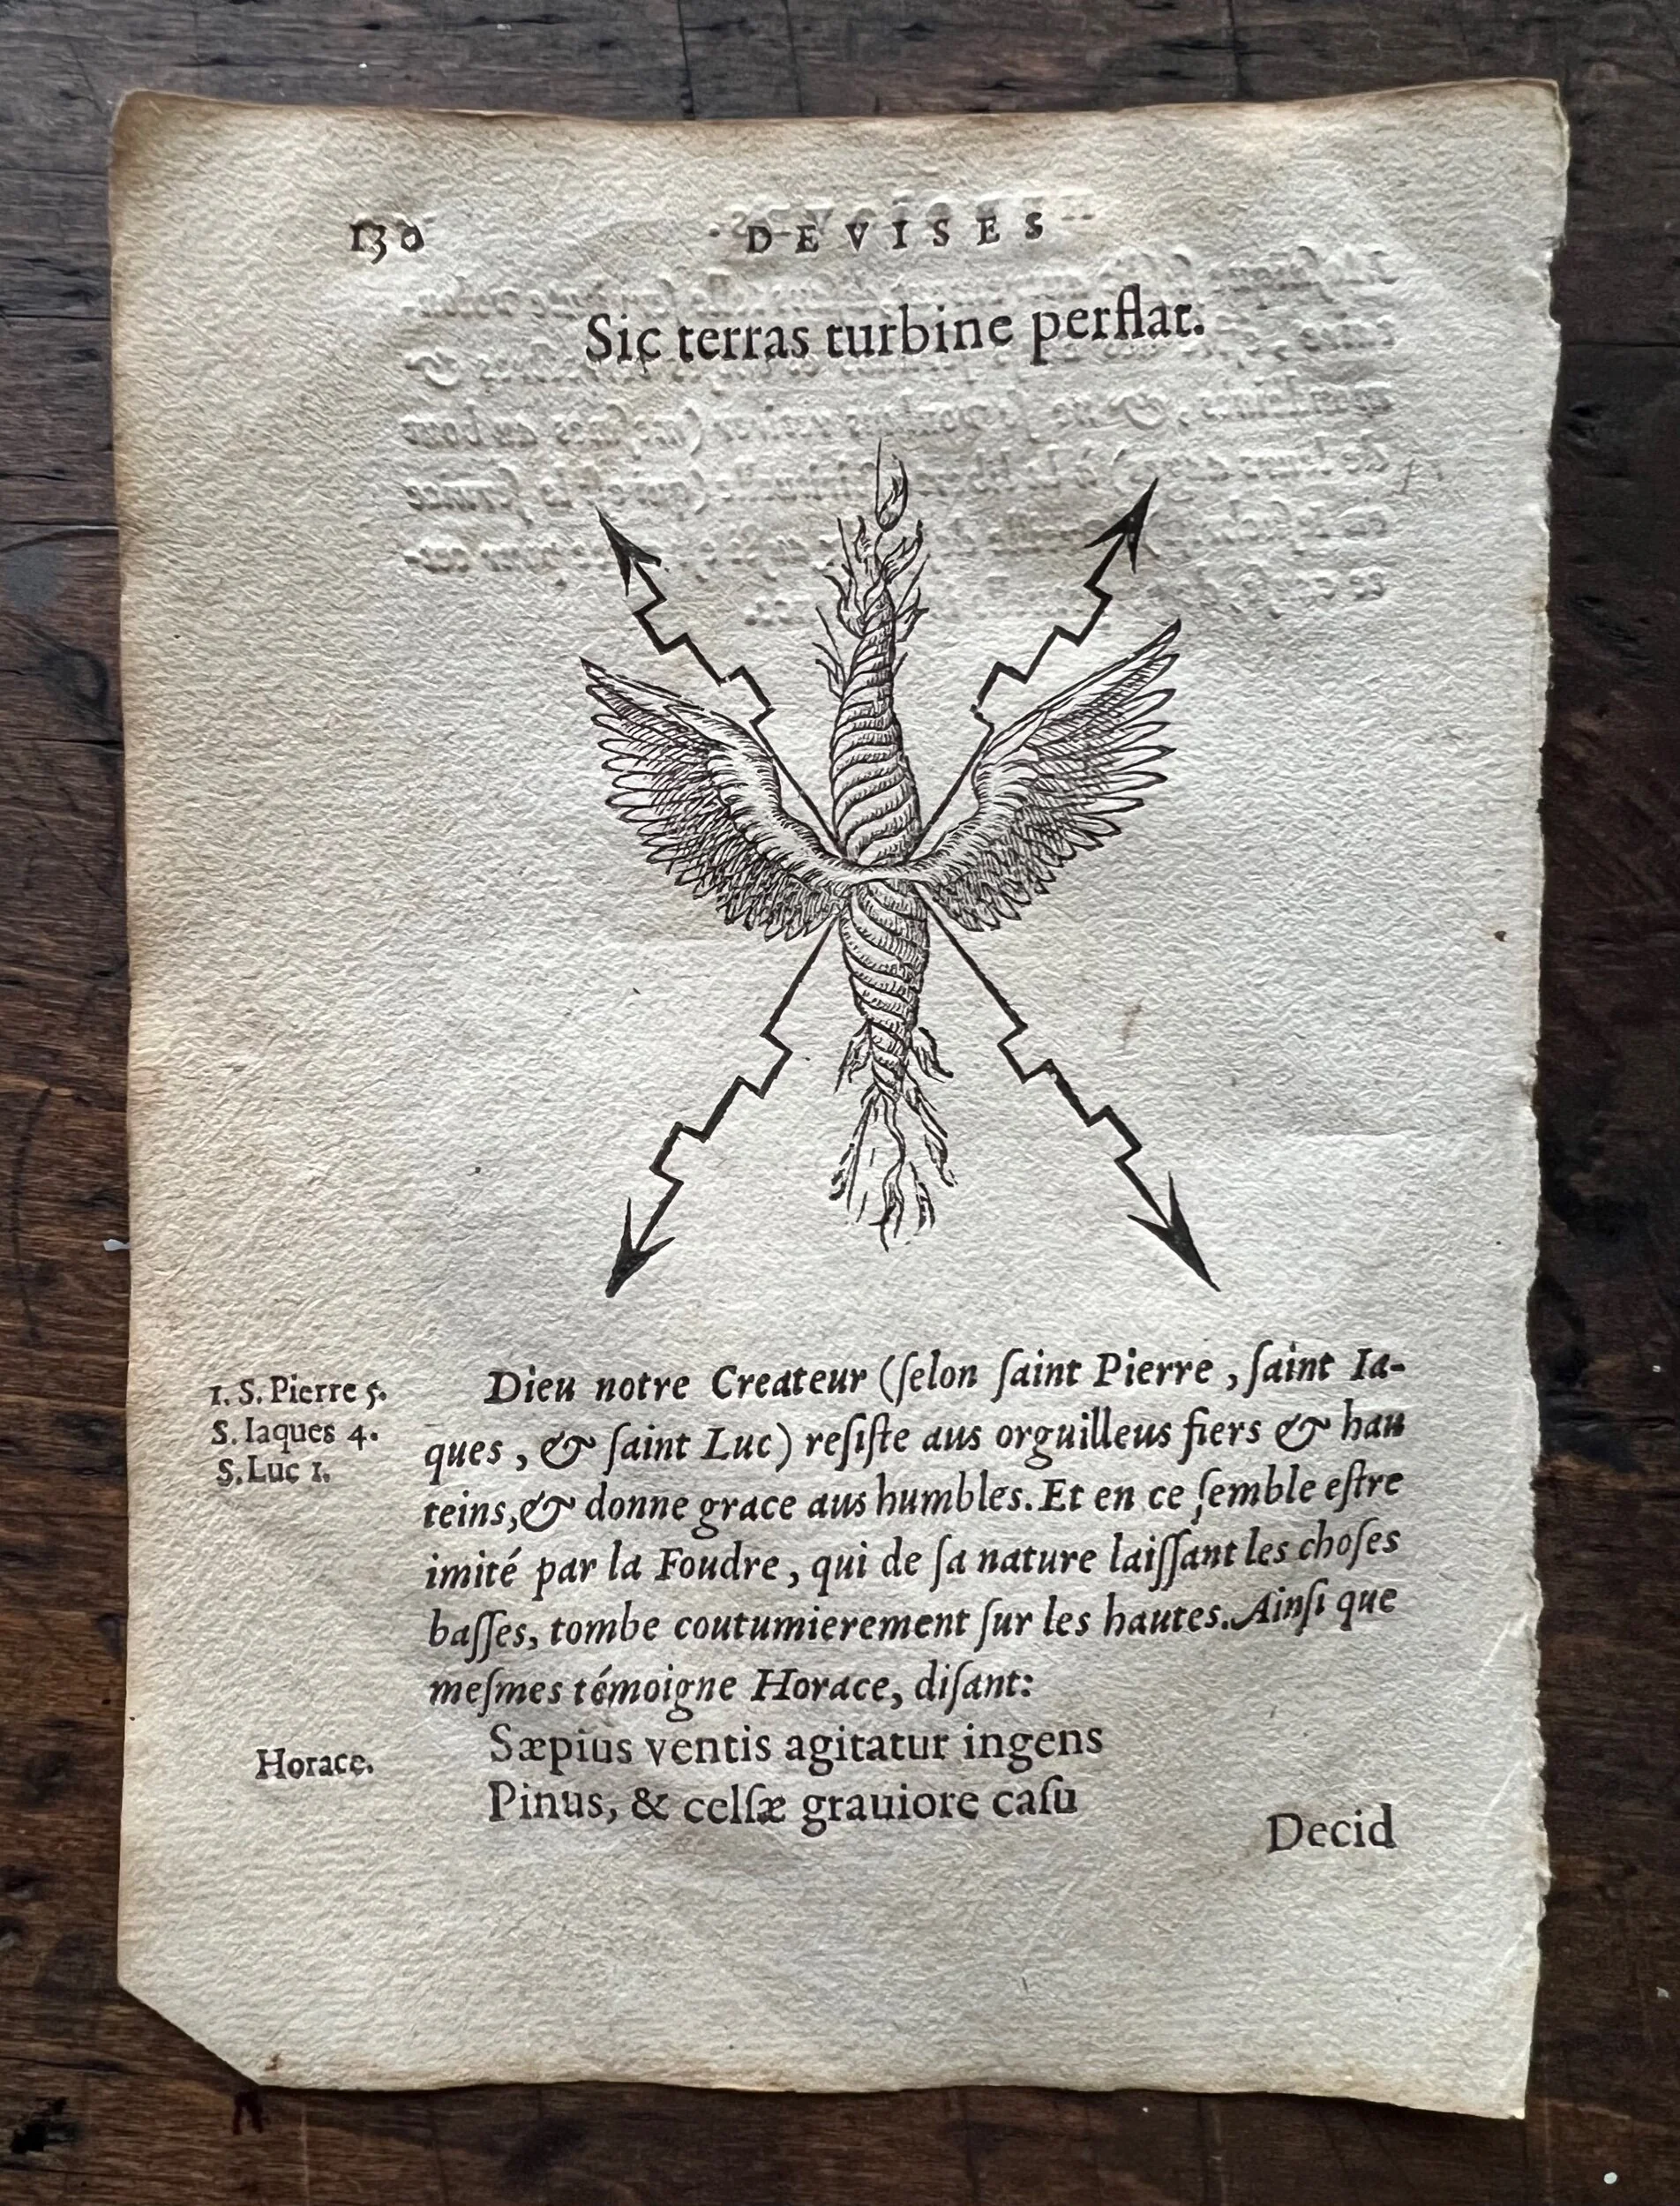 130
DEVISES
Sic terras turbine perflat.
1. S. Pierre 5.
S. Iaques 4.
S. Luc 1.
Dieu notre Createur (ſelon ſaint Pierre , ſaint Ia-
ques , & ſaint Luc) reſiſte aus orguilleus fiers & hau
teins,& donne grace aus humbles. Et en ce ſemble eſtre
imité par la Foudre , qui de ſa nature laiſſant les choſes
baſſes, tombe coutumierement ſur les hautes. Ainſi que
meſmes témoigne Horace, diſant:
Horace.
Sæpius ventis agitatur ingens
Pinus, & celſæ grauiore caſu
Decid